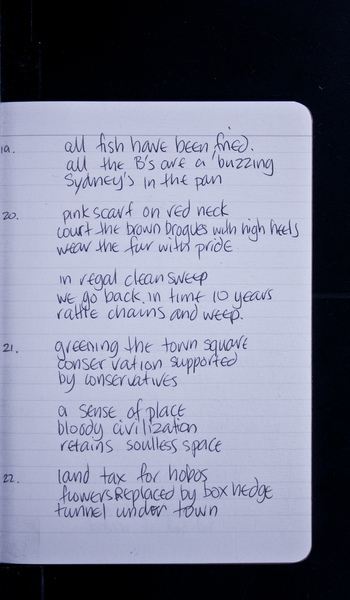 19. all fish have been fried.
all the B's are a 'buzzing
Sydney's in the pan
20. pink scarf on red neck
court the brown brogues with high heels
wear the fur with pride
in regal clean sweep
we go back in time 10 years
rattle chains and weep.
21. greening the town square
conservation supported
by conservatives
a sense of place
bloody civilization
retains soulless space
22. land tax for hobos
flowers Replaced by box hedge
tunnel under town